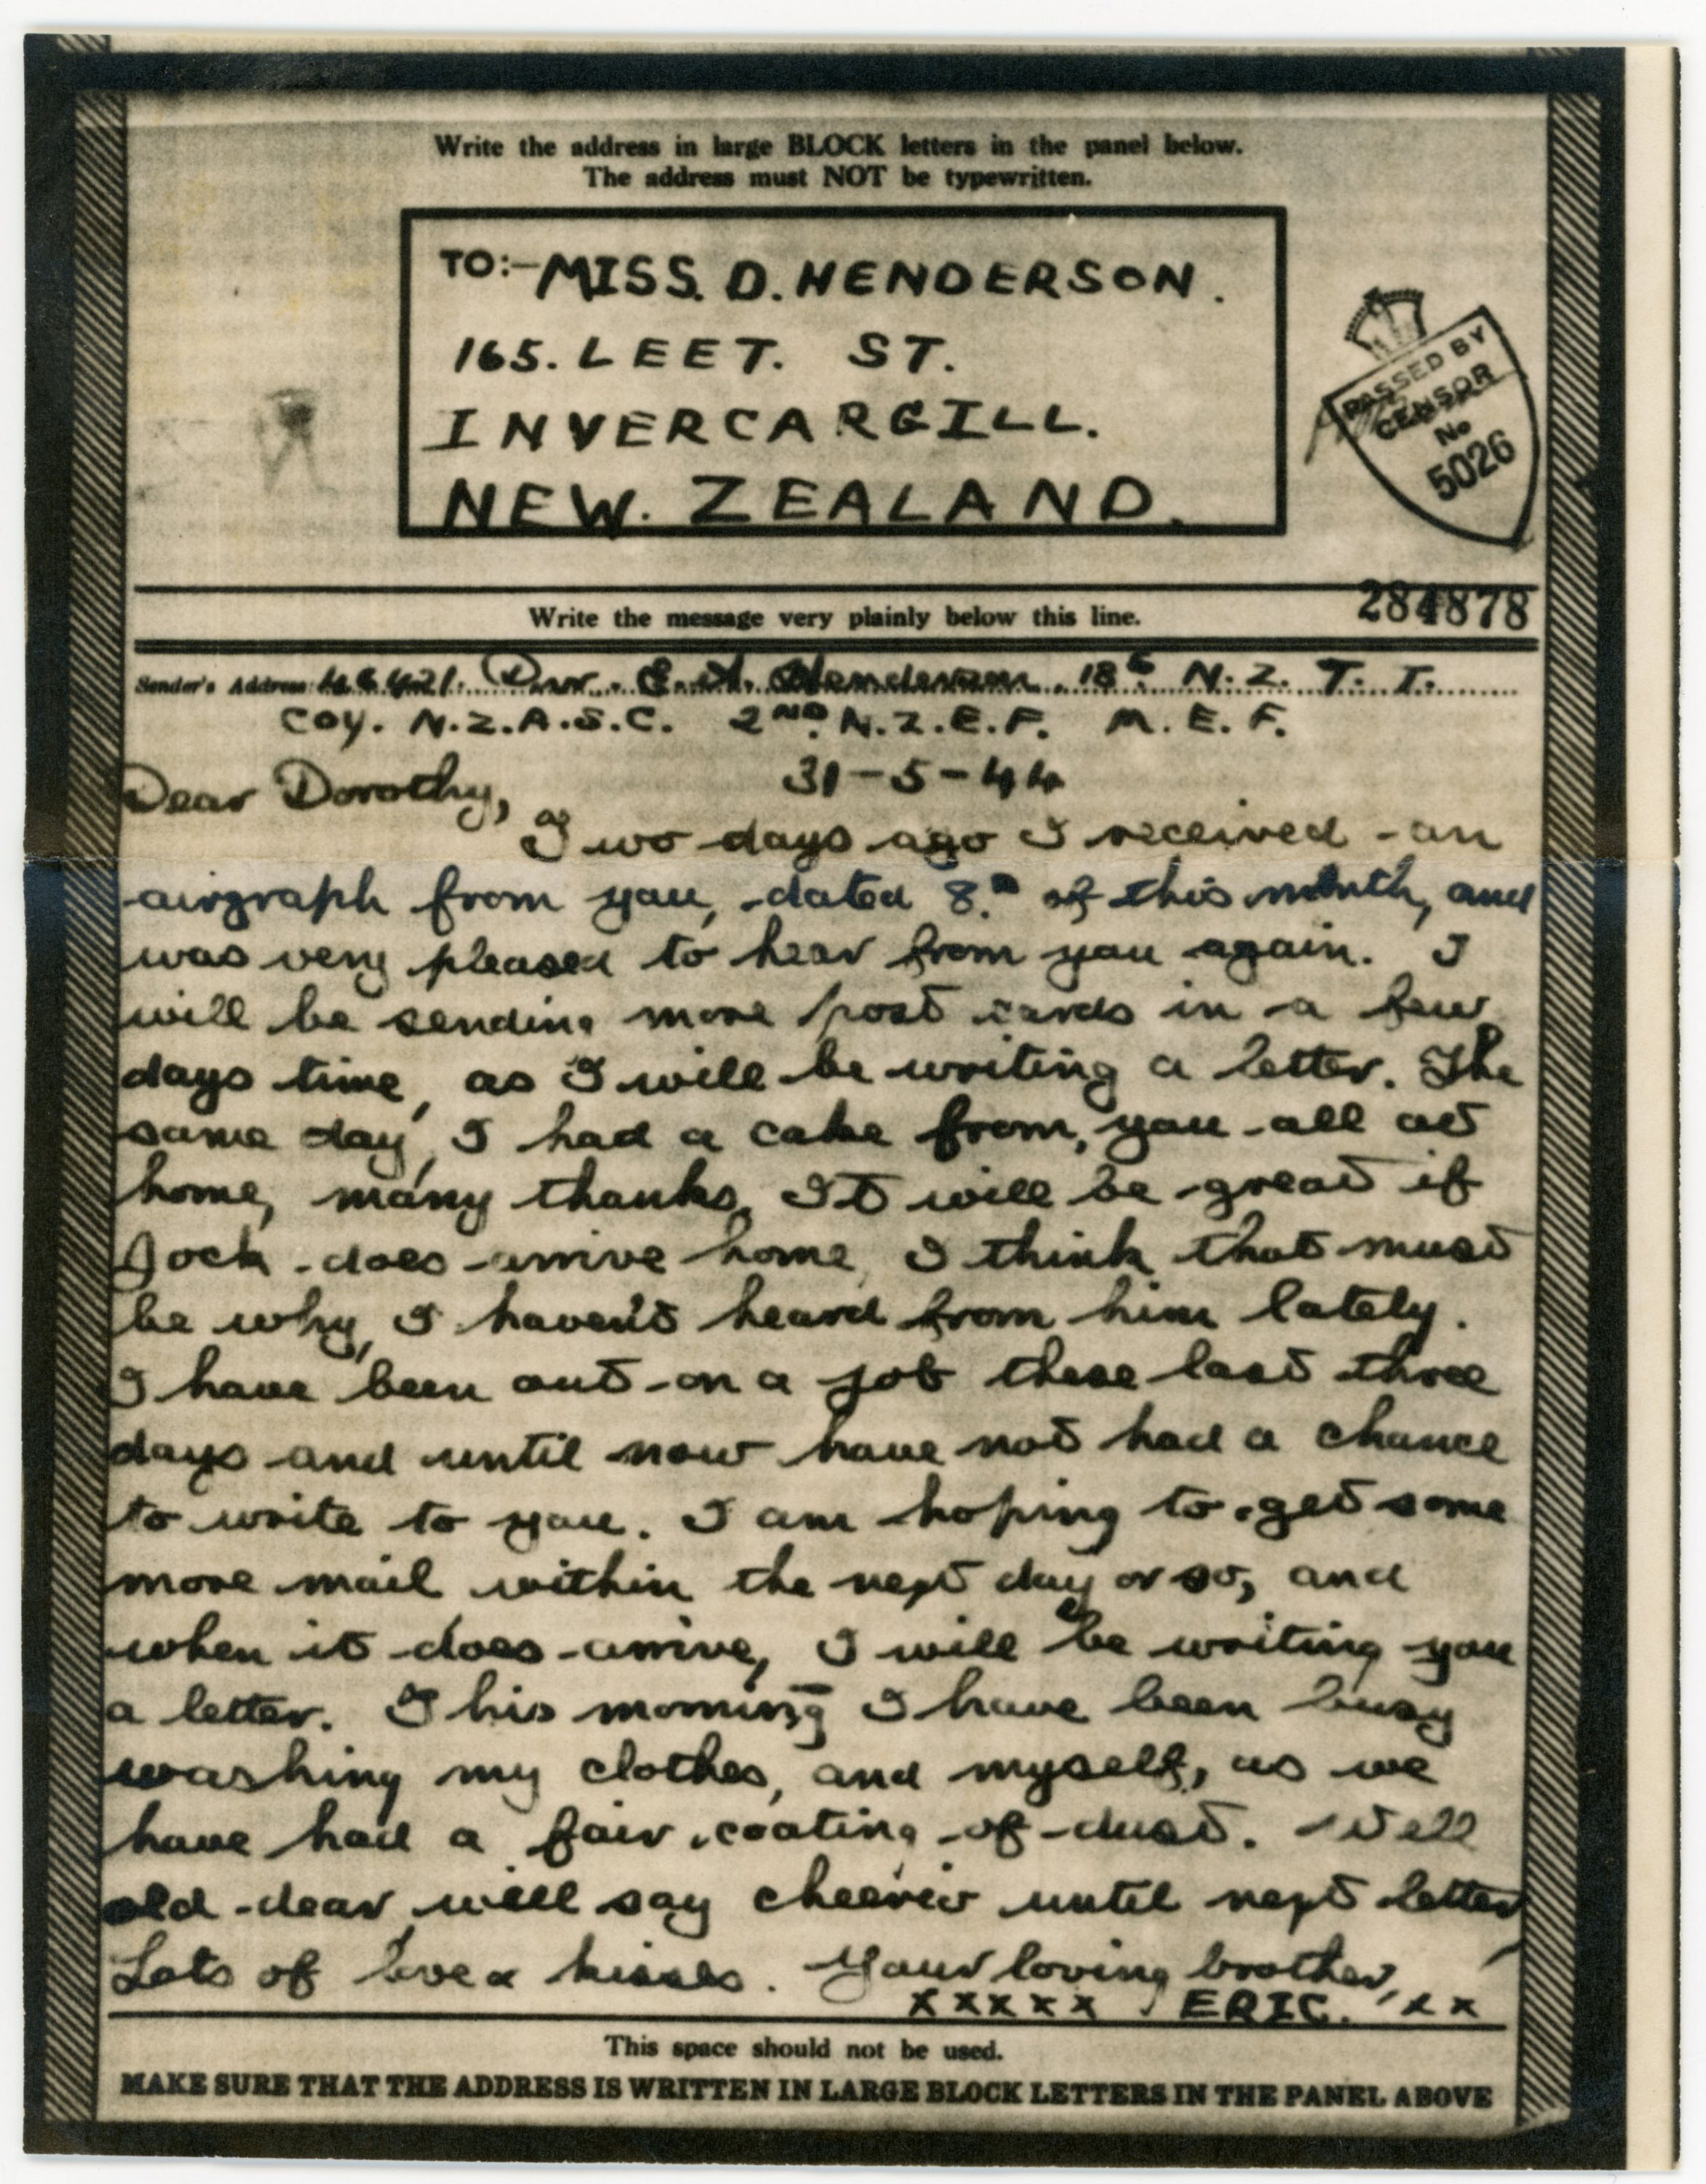 Write the address in large BLOCK letters in the panel below.
The address must NOT be typewritten.
TO:- MISS. D. HENDERSON.
165. LEET. ST.
INVERCARGILL.
NEW. ZEALAND.
PASSED BY
CENSOR
No
5026
284878
Write the message very plainly below this line.
Sender's Address: Dvr. E. A. Henderson. 18th N.Z. T. T.
COY. N.Z.A.S.C. 2ND. N.Z.E.F. M.E.F.
31-5-44
Dear Dorothy,
Two days ago I received an
airgraph from you, dated 8th of this month, and
was very pleased to hear from you again. I
will be sending more post cards in a few
days time, as I will be writing a letter. The
same day, I had a cake from, you all at
home, many thanks. It will be great if
Jock does arrive home, I think that must
be why, I haven't heard from him lately.
I have been out on a job these last three
days and until now have not had a chance
to write to you. I am hoping to get some
more mail within the next day or so, and
when it does arrive, I will be writing you
a letter. This morning I have been busy
washing my clothes, and myself, as we
have had a fair coating of dust. Well
old dear, will say cheerio until next letter
Lots of love & kisses. Your loving brother,
xxxxx ERIC. xx
This space should not be used.
MAKE SURE THAT THE ADDRESS IS WRITTEN IN LARGE BLOCK LETTERS IN THE PANEL ABOVE